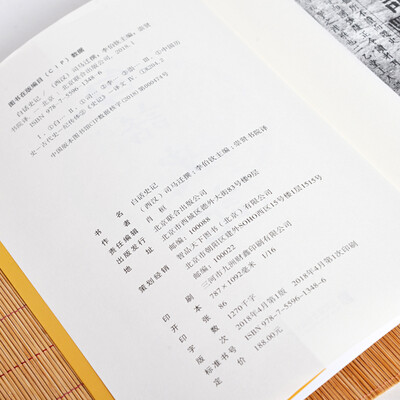 图书在版编目（CIP）数据
白话史记 / （西汉）司马迁撰；李伯钦主编；崇贤
书院译. -- 北京：北京联合出版公司，2018.1
ISBN 978-7-5596-1348-6
中国版本图书馆CIP数据核字
书 名 白话史记
作 者 （西汉）司马迁撰；李伯钦主编；崇贤书院译
责任编辑 肖 桓
出版发行 北京联合出版公司
地 址 北京市西城区德外大街83号楼9层
邮编：100088
策划经销 智品天下图书（北京）有限公司
北京市朝阳区建外SOHO西区15号楼1层1515号
邮编：100022
印 刷 三河市九洲财鑫印刷有限公司
开 本 787×1092毫米 1/16
印 张 86
字 数 1270千字
版 次 2018年4月第1版 2018年4月第1次印刷
标准书号 ISBN 978-7-5596-1348-6
定 价 188.00元